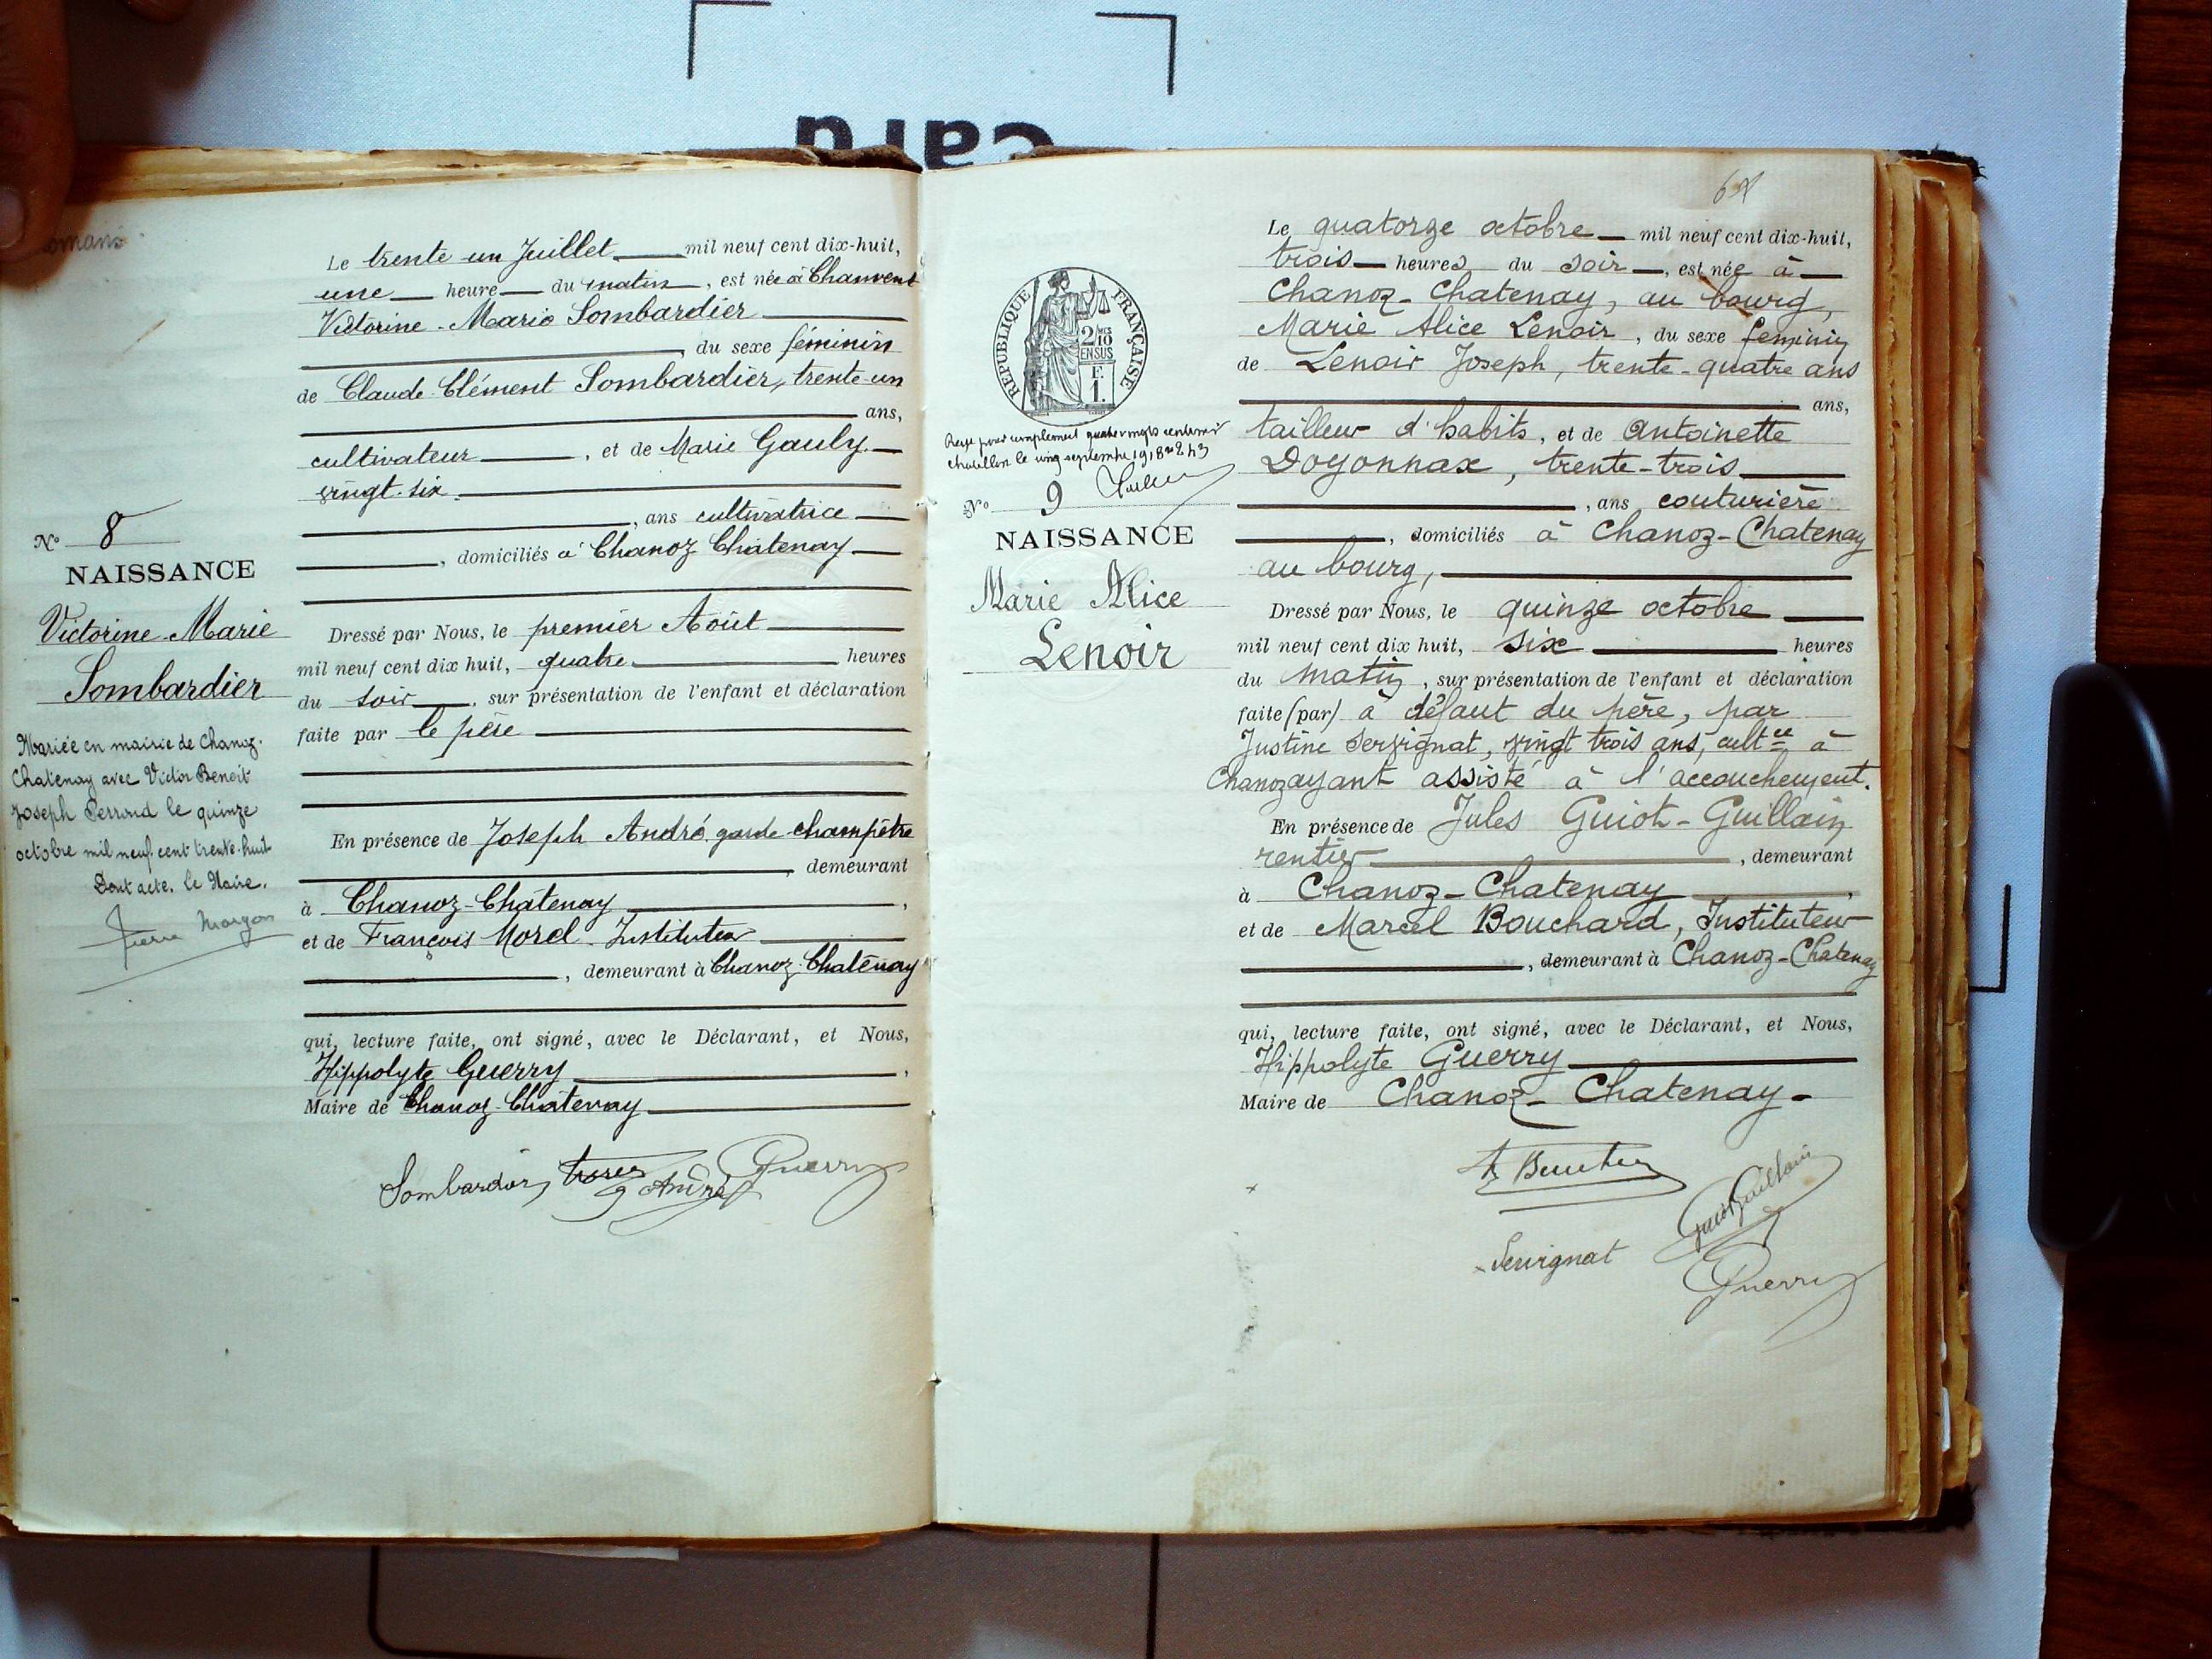 Card
omans
Le trente un Juillet mil neuf cent dix-huit,
une heure du matin, est née à Chanvent
Victorine-Marie Sombardier
du sexe féminin
de Claude Clément Sombardier, trente-un
ans,
cultivateur, et de Marie Gauly
vingt-six
, ans cultivatrice
, domiciliés à Chanoz Châtenay
Dressé par Nous, le premier Août
mil neuf cent dix huit, quatre heures
du soir, sur présentation de l'enfant et déclaration
faite par le père
En présence de Joseph André garde-champêtre
, demeurant
à Chanoz-Châtenay,
et de François Morel Instituteur
, demeurant à Chanoz-Châtenay
qui, lecture faite, ont signé, avec le Déclarant, et Nous,
Hippolyte Guerry,
Maire de Chanoz-Châtenay
Sombardier
André
Guerry
No 8
NAISSANCE
Victorine-Marie
Sombardier
Mariée en mairie de Chanoz-
Chatenay avec Victor Benoit
Joseph Perroud le quinze
octobre mil neuf cent trente-huit
Dont acte. Le Maire.
Pierre
RÉPUBLIQUE FRANÇAISE
2/10
EN SUS
F.
1.
pour complément
No 9
NAISSANCE
Marie Alice
Lenoir
Le quatorze octobre mil neuf cent dix-huit,
trois heures du soir, est née à
Chanoz-Chatenay, au bourg,
Marie Alice Lenoir, du sexe feminin
de Lenoir Joseph, trente-quatre ans
ans,
tailleur d'habits, et de Antoinette
Doyonnax, trente-trois
, ans couturière
, domiciliés à Chanoz-Chatenay
au bourg,
Dressé par Nous, le quinze octobre
mil neuf cent dix huit, six heures
du matin, sur présentation de l'enfant et déclaration
faite (par) à défaut du père, par
Justine Servignat, vingt trois ans, cultce à
Chanoz ayant assisté à l'accouchement.
En présence de Jules Guiot-Guillain
rentier, demeurant
à Chanoz-Chatenay,
et de Marcel Bouchard, Instituteur
, demeurant à Chanoz-Chatenay
qui, lecture faite, ont signé, avec le Déclarant, et Nous,
Hippolyte Guerry
Maire de Chanoz-Chatenay-
Guiot Guillain
Servignat
Guerry